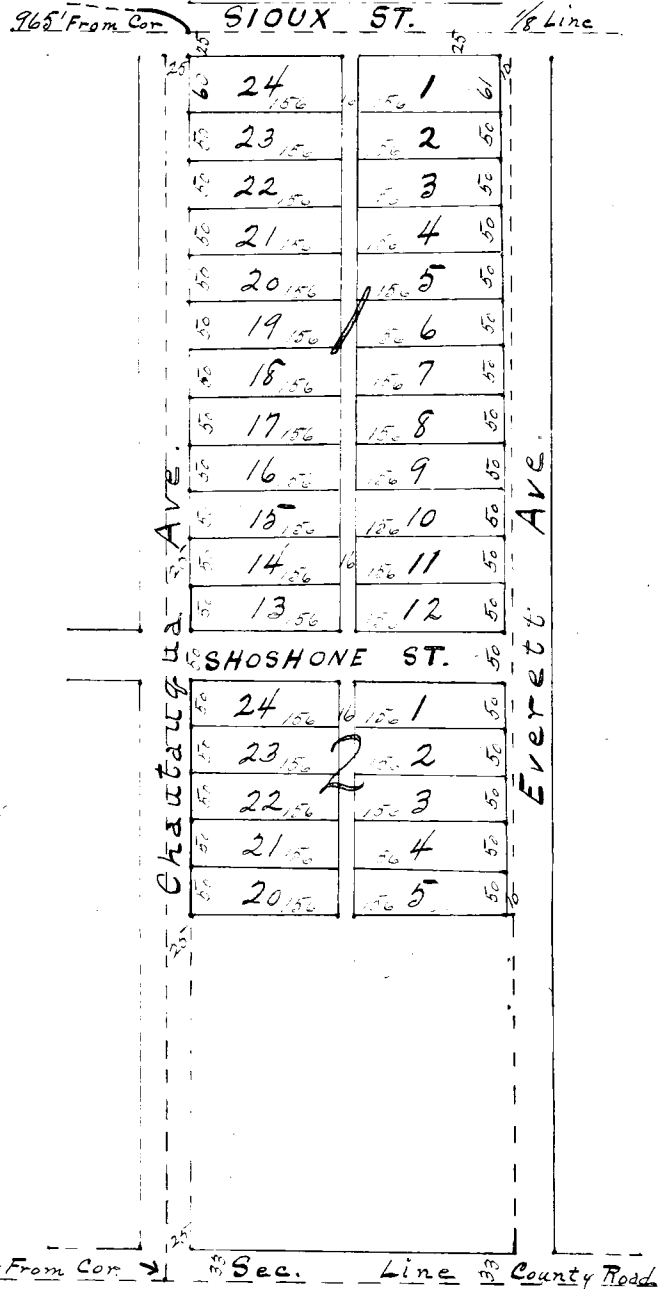 965' From Cor SIOUX ST. 1/8 Line
25 25 25
60 24 156 16 156 1 61
50 23 156 156 2 50
50 22 156 156 3 50
50 21 156 156 4 50
50 20 156 156 5 50
1
50 19 156 156 6 50
50 18 156 156 7 50
50 17 156 156 8 50
50 16 156 156 9 50
50 15 156 156 10 50
50 14 156 16 156 11 50
50 13 156 156 12 50
Chautauqua Ave.
25
Everett Ave.
50 SHOSHONE ST. 50
50 24 156 16 156 1 50
50 23 156 156 2 50
2
50 22 156 156 3 50
50 21 156 156 4 50
50 20 156 156 5 50
25
25
From Cor 33 Sec. Line 33 County Road